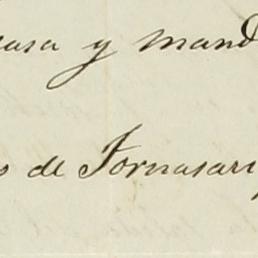 casa y mand
s de Fornasari